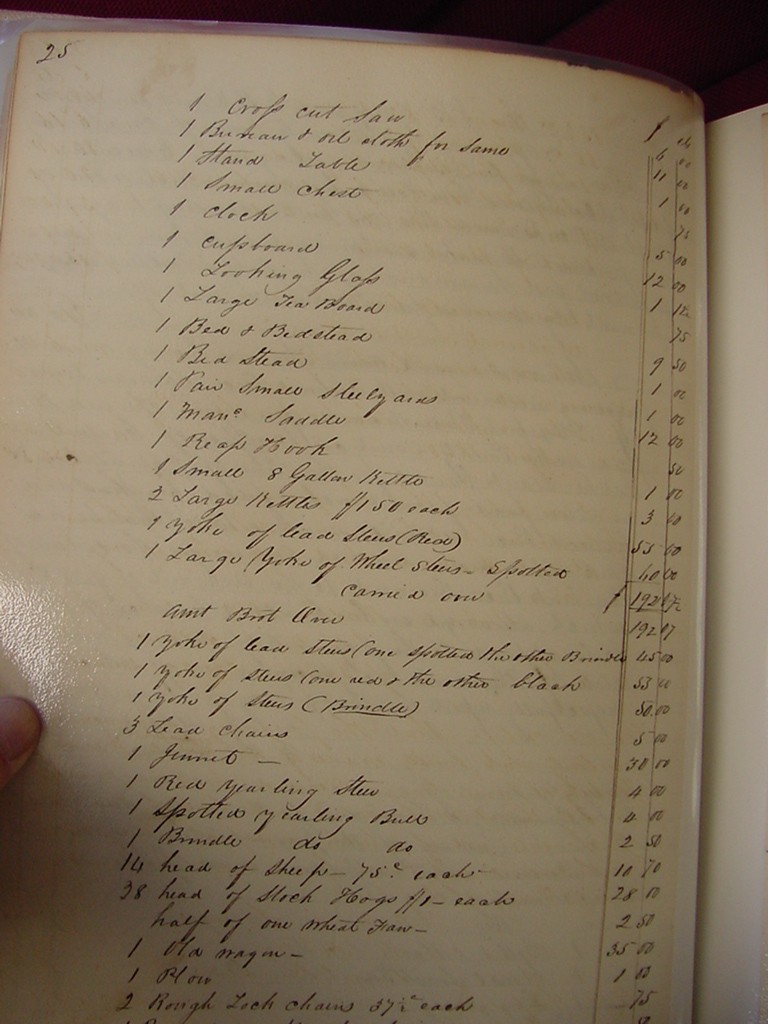 25
$ cts
1 Cross cut Saw 6 00
1 Bureau & oil cloth for same 11 00
1 Stand Table 1 00
1 Small Chest 75
1 clock 5 00
1 cupboard 12 00
1 Looking Glass 1 12½
1 Large Tea Board 75
1 Bed & Bedstead 9 50
1 Bed Stead 1 00
1 Pair Small Steelyards 1 00
1 Mans Saddle 12 00
1 Reap Hook 50
1 Small 8 Gallon Kettle 1 00
2 Large Kettles $1 50 each 3 00
1 Yoke of lead Steers (Red) 55 00
1 Large Yoke of Wheel Steers - Spotted 40 00
carried over $ 192
Amt Brot Over 192
1 Yoke of lead Steers (one spotted the other Brindle 45 00
1 yoke of steers (one red & the other black 53 00
1 yoke of Steers (Brindle) 50.00
3 Lead Chains 5 00
1 Jennet - 30 00
1 Red yearling Steer 4 00
1 Spotted yearling Bull 4 00
1 Brindle do do 2 50
14 head of Sheep - 75c each 10
head of Stock Hogs $1 - each 28 00
half of one Wheat Fan - 2 50
1 Old wagon - 35 00
1 Plow 1
2 Rough Lock chains 37½ each 75